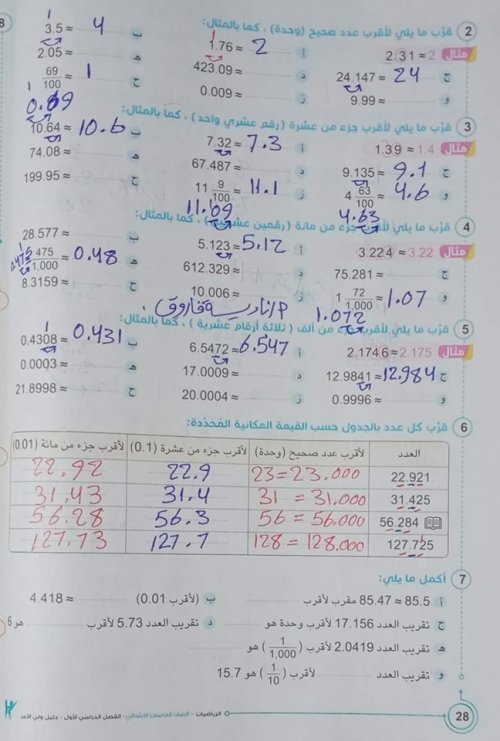 2 قرّب ما يلي لأقرب عدد صحيح (وحدة)، كما بالمثال:
مثال 2.31 ≈ 2 أ 1.76 ≈ 2 ب 3.5 ≈ 4
ج 24.147 ≈ 24 د 423.09 ≈ هـ 2.05 ≈
و 9.99 ≈ ز 0.009 ≈ ح 69/100 ≈ 1
0.69
3 قرّب ما يلي لأقرب جزء من عشرة (رقم عشري واحد)، كما بالمثال:
مثال 1.39 ≈ 1.4 أ 7.32 ≈ 7.3 ب 10.64 ≈ 10.6
ج 9.135 ≈ 9.1 د 67.487 ≈ هـ 74.08 ≈
و 4 63/100 ≈ 4.6 ز 11 9/100 ≈ 11.1 ح 199.95 ≈
4.63 11.09
4 قرّب ما يلي لأقرب جزء من مائة (رقمين عشريين)، كما بالمثال:
مثال 3.224 ≈ 3.22 أ 5.123 ≈ 5.12 ب 28.577 ≈
ج 75.281 ≈ د 612.329 ≈ هـ 475/1,000 ≈ 0.48
0.475
و 1 72/1,000 ≈ 1.07 ز 10.006 ≈ ح 8.3159 ≈
1.072 نادية فاروق
5 قرّب ما يلي لأقرب جزء من ألف (ثلاثة أرقام عشرية)، كما بالمثال:
مثال 2.1746 ≈ 2.175 أ 6.5472 ≈ 6.547 ب 0.4308 ≈ 0.431
ج 12.9841 ≈ 12.984 د 17.0009 ≈ هـ 0.0003 ≈
و 0.9996 ≈ ز 20.0004 ≈ ح 21.8998 ≈
6 قرّب كل عدد بالجدول حسب القيمة المكانية المحدّدة:
العدد لأقرب عدد صحيح (وحدة) لأقرب جزء من عشرة (0.1) لأقرب جزء من مائة (0.01)
22.921 23 = 23.000 22.9 22.92
31.425 31 = 31.000 31.4 31.43
56.284 56 = 56.000 56.3 56.28
127.725 128 = 128.000 127.7 127.73
7 أكمل ما يلي:
أ 85.5 ≈ 85.47 مقرب لأقرب ب (لأقرب 0.01) 4.418 ≈
ج تقريب العدد 17.156 لأقرب وحدة هو د تقريب العدد 5.73 لأقرب هو 6
هـ تقريب العدد 2.0419 لأقرب (1/1,000) هو
و تقريب العدد لأقرب (1/10) هو 15.7
28 الرياضيات - الصف الخامس الابتدائي - الفصل الدراسي الأول - دليل ولي الأمر